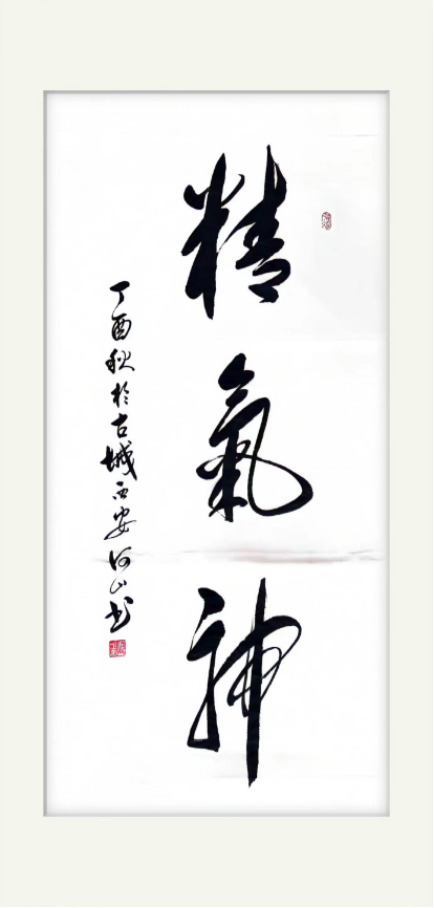 精氣神
丁酉秋於古城西安何山书